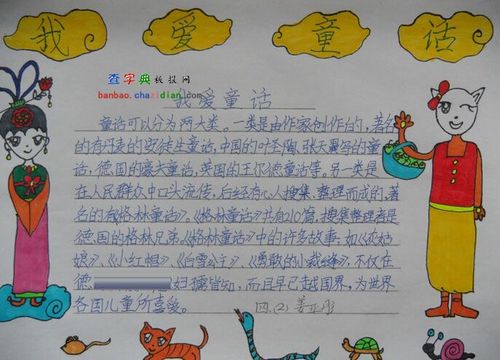 我 爱 童 话
查字典 板报网
banbao.chazidian.com
我爱童话
童话可以分为两大类。一类是由作家创作的,著名
的有丹麦的安徒生童话,中国的叶圣陶、张天翼写的童
话,德国的豪夫童话,英国的王尔德童话等。另一类是
在人民群众中口头流传,后经有心人搜集、整理而成的,著
名的有《格林童话》。《格林童话》共有210篇,搜集整理者是
德国的格林兄弟。《格林童话》中的许多故事,如《灰姑
娘》、《小红帽》、《白雪公主》、《勇敢的小裁缝》,不仅在
德 妇孺皆知,而且早已越国界,为世界
各国儿童所喜爱。 四.(2) 姜